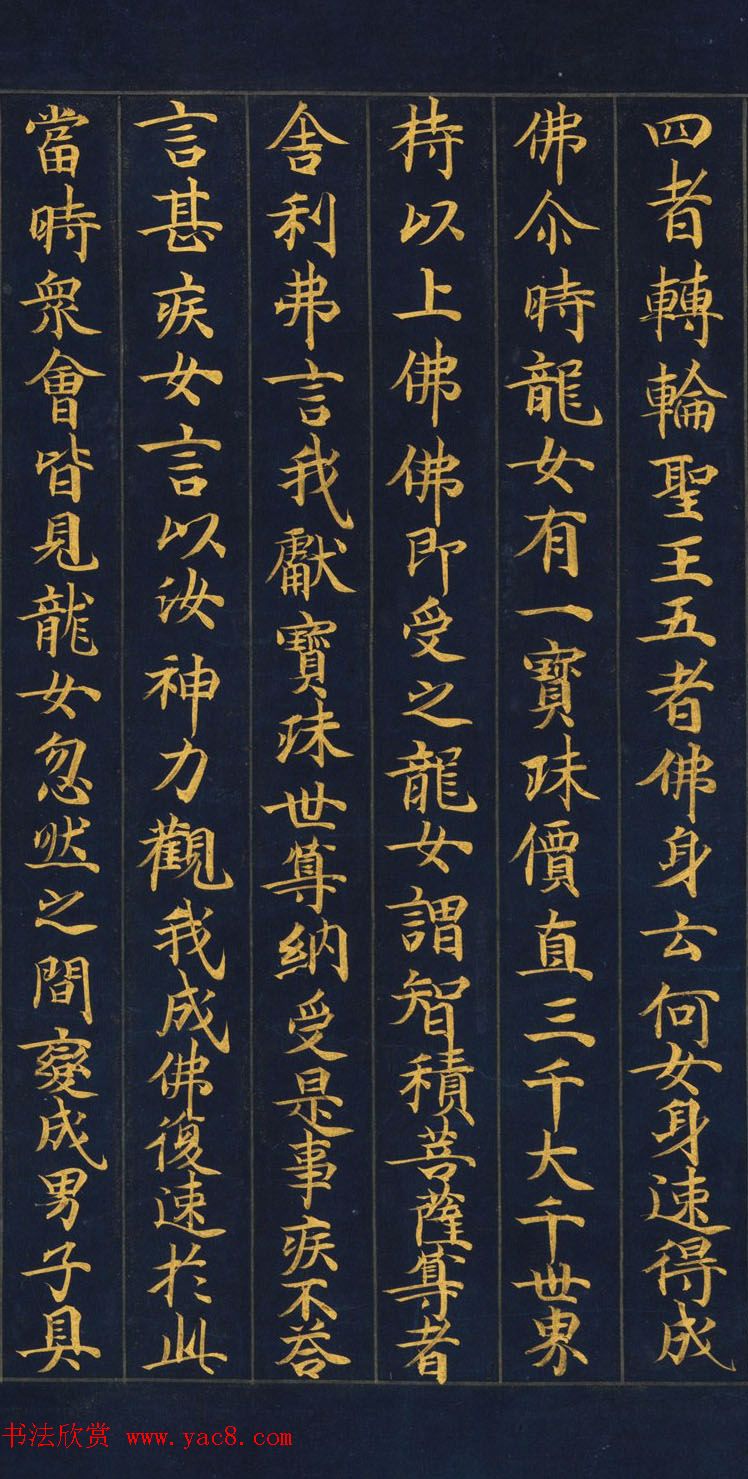 四者轉輪聖王五者佛身云何女身速得成
佛尒時龍女有一寶珠價直三千大千世界
持以上佛佛即受之龍女謂智積菩薩尊者
舍利弗言我獻寶珠世尊納受是事疾不荅
言甚疾女言以汝神力觀我成佛復速於此
當時衆會皆見龍女忽然之間變成男子具
书法欣赏 www.yac8.com